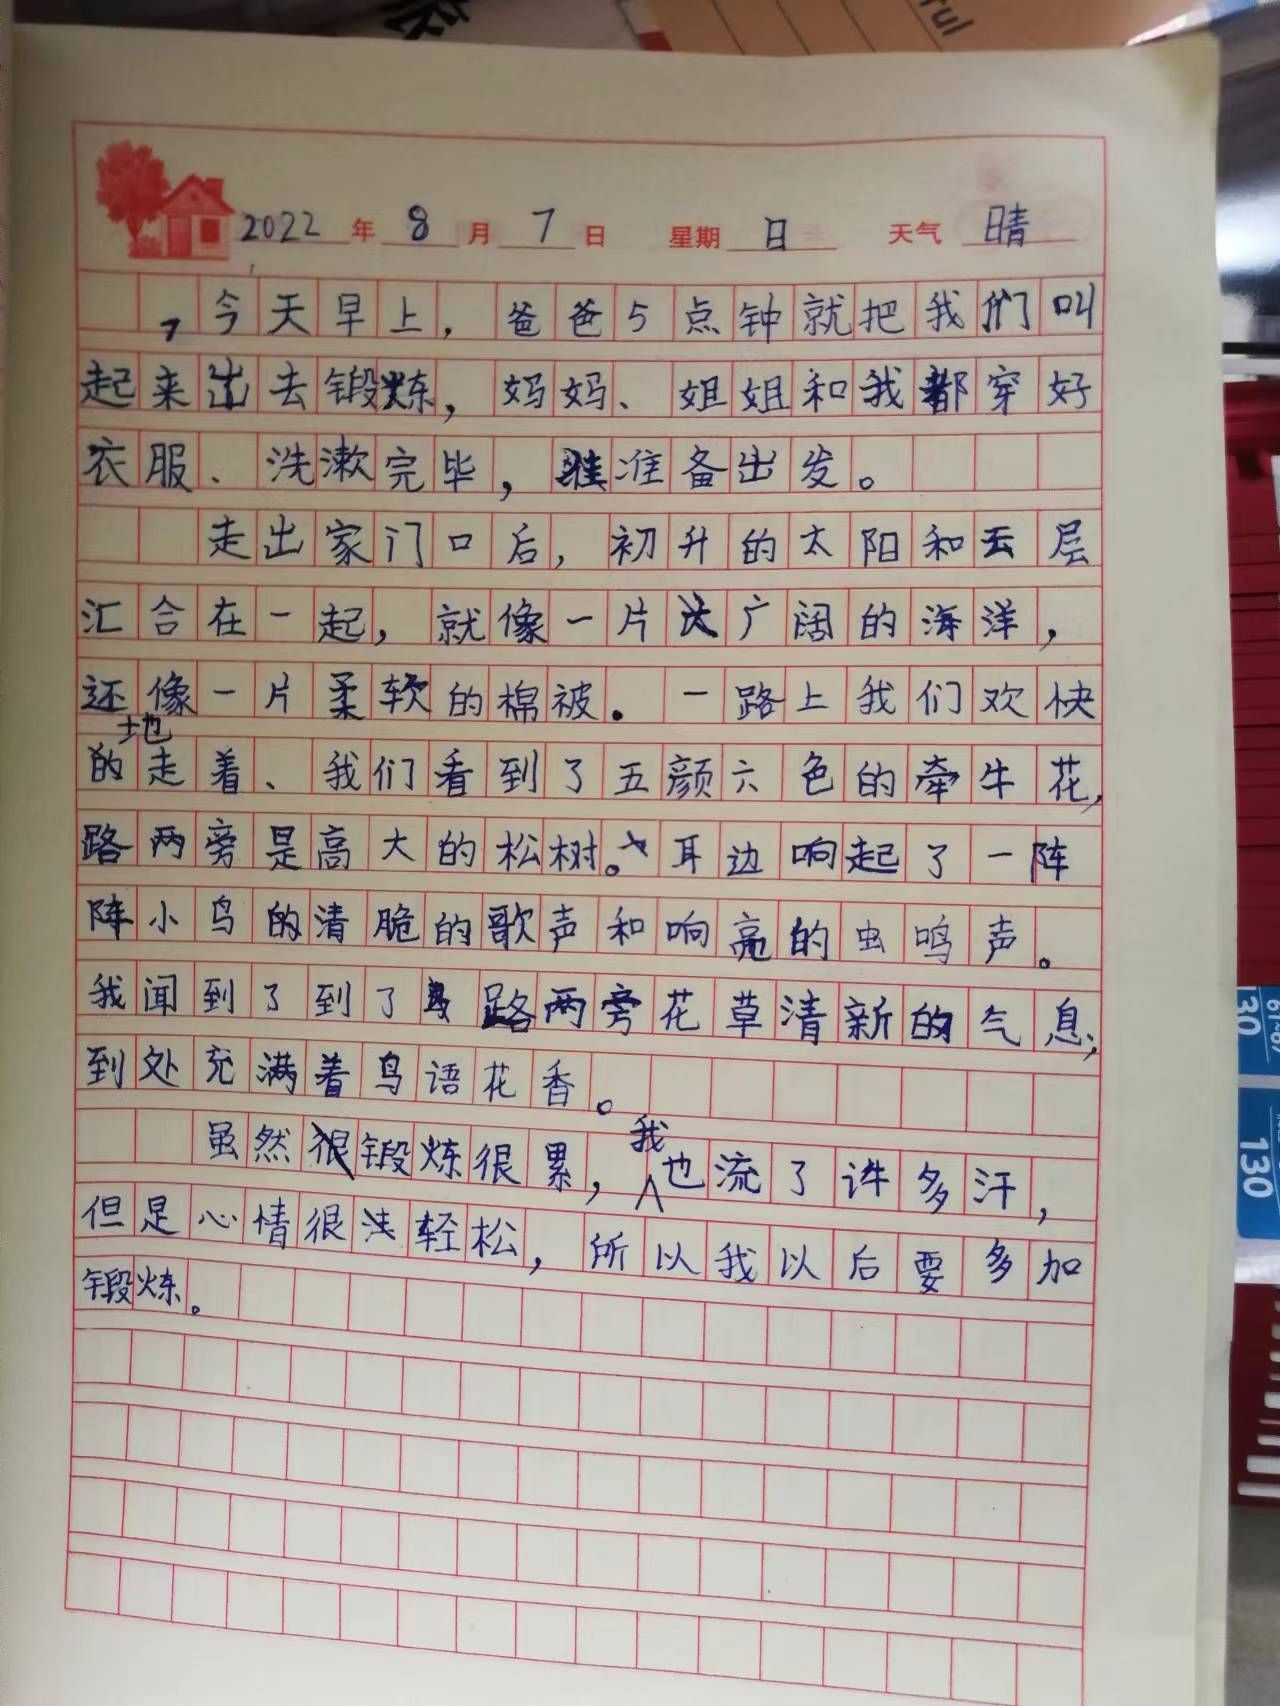 2022年 8月 7日 星期 日 天气 晴
今天早上，爸爸5点钟就把我们叫
起来出去锻炼，妈妈、姐姐和我都穿好
衣服、洗漱完毕，准备出发。
走出家门口后，初升的太阳和云层
汇合在一起，就像一片广阔的海洋，
还像一片柔软的棉被。一路上我们欢快
地
的走着、我们看到了五颜六色的牵牛花，
路两旁是高大的松树。耳边响起了一阵
阵小鸟的清脆的歌声和响亮的虫鸣声。
我闻到了到了路两旁花草清新的气息；
到处充满着鸟语花香。
虽然锻炼很累，我也流了许多汗，
但是心情很轻松，所以我以后要多加
锻炼。
130
61-67
130